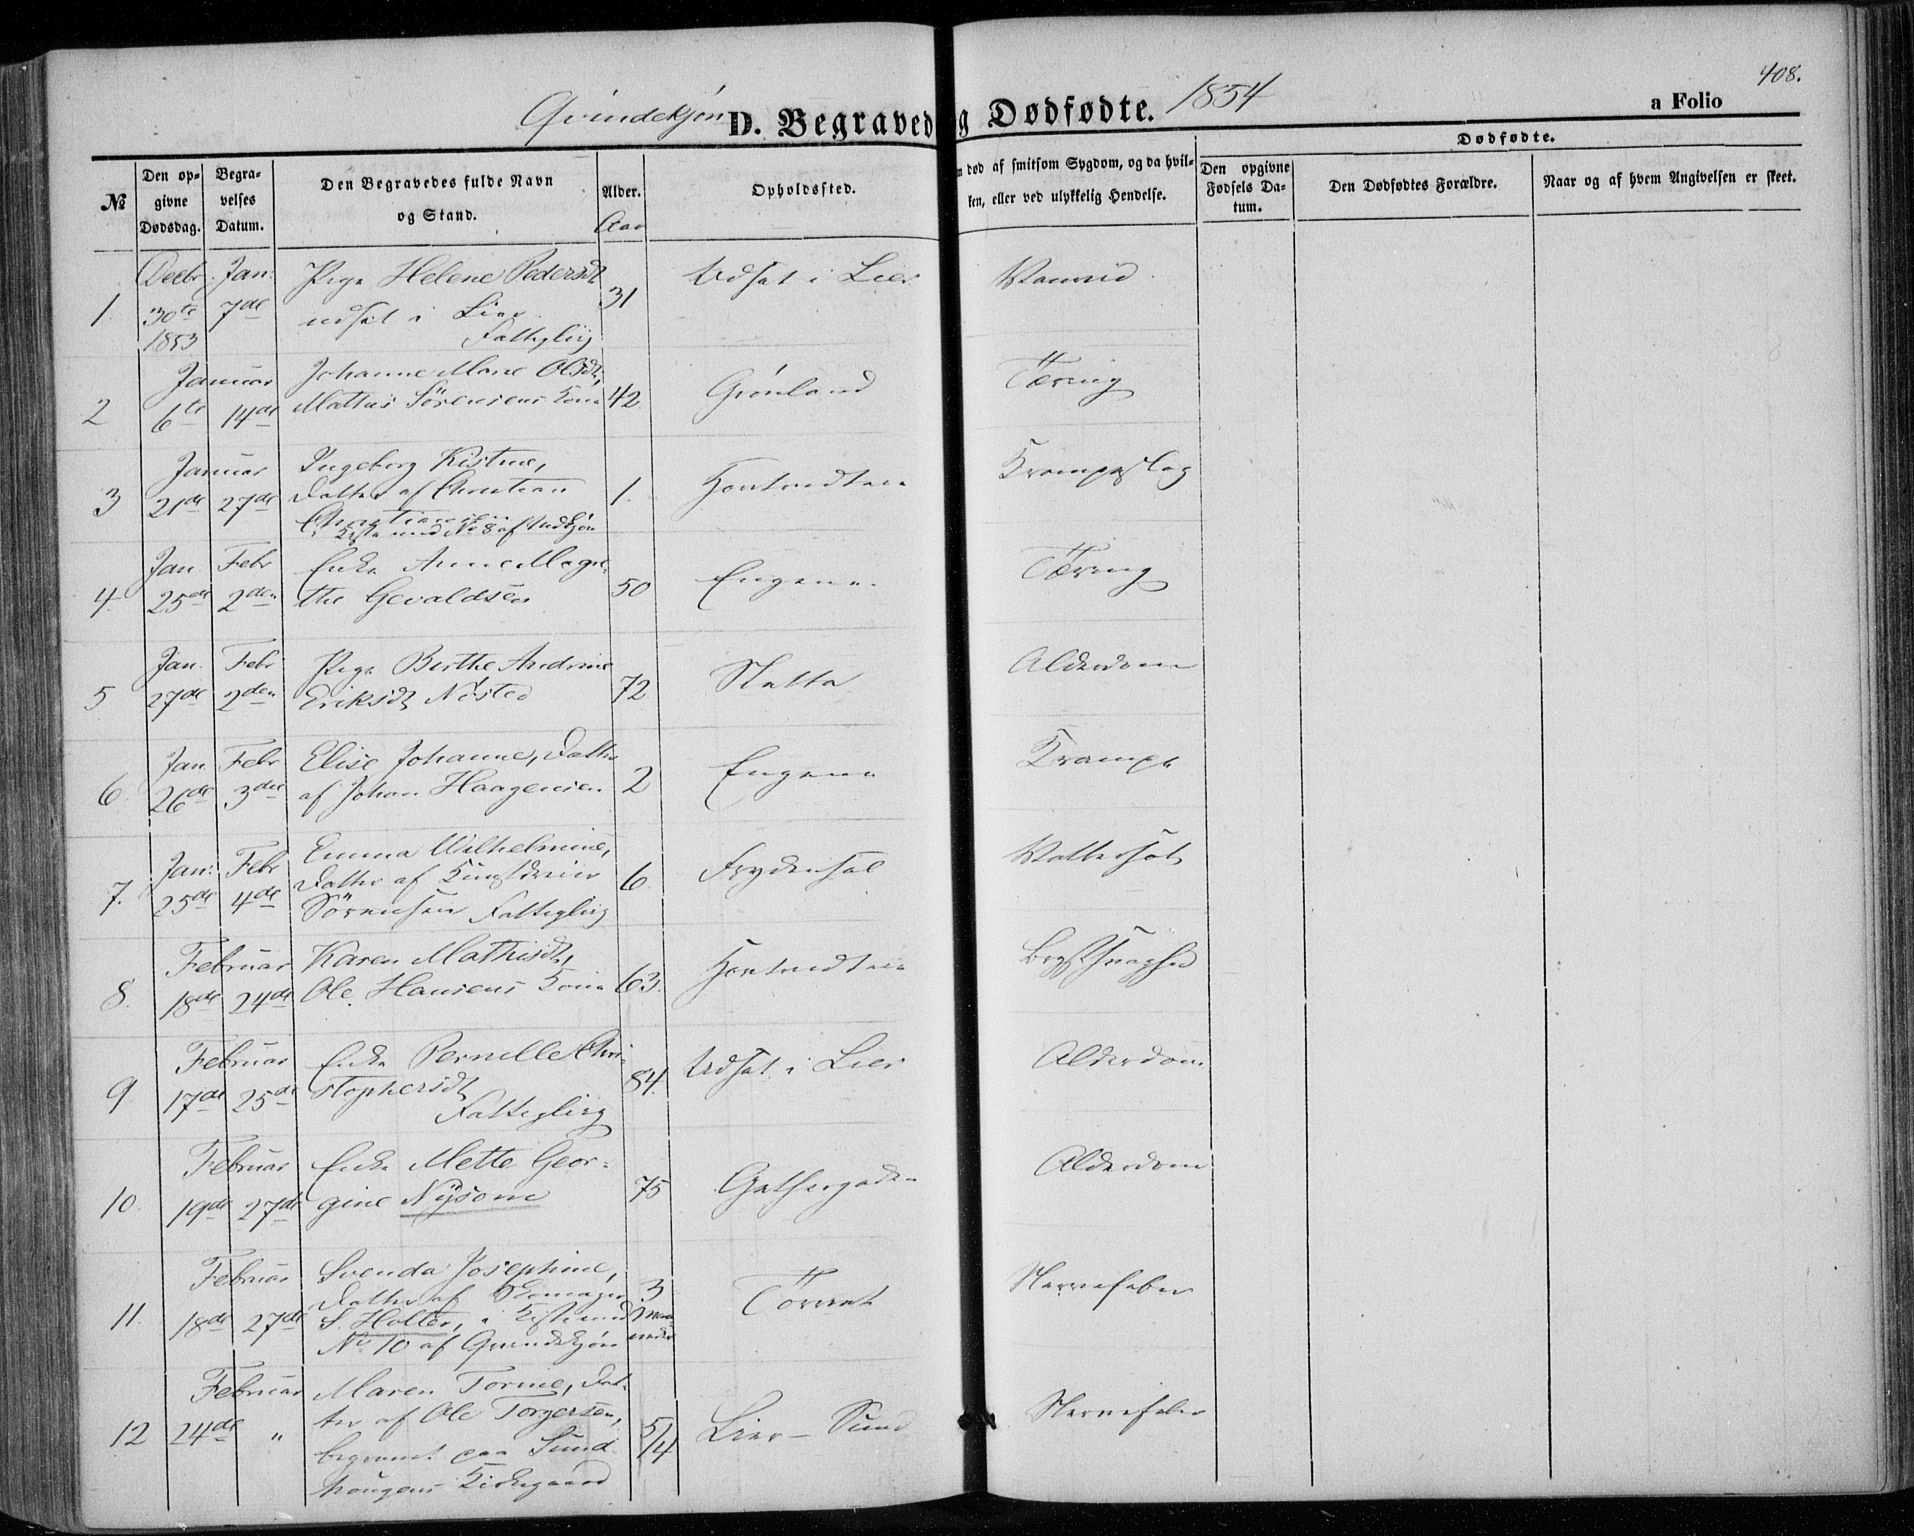 Qvindekjøn D. Begravede og Dødfødte. 1854 a Folio 408.
№ Den opgivne Dødsdag. Begravelses Datum. Den Begravedes fulde Navn og Stand. Alder. Aar Opholdssted. død af smitsom Sygdom, og da hvilken, eller ved ulykkelig Hendelse.
Dødfødte.
Den opgivne Fødsels Datum. Den Dødfødtes Forældre. Naar og af hvem Angivelsen er skeet.
1 Decbr. 30te 1853 Jan: 7de Pige Helene Pedersdt
udsat i Lier
Fattiglig
31 Udsat i Lier
2 Januar 6te 14de Johanne Marie Olsdt,
Mathis Sörensens Kone
42 Grønland Tæring
3 Januar 21de 27de Ingeborg Kistine,
Datter af Christian
Christiansen
i Kiste med No 8 af Mdkjøn
1. Krampeslag
4. Jan 25de Febr 2den Enke Anne Magre-
the Gevaldsen
50 Engene Tæring
5 Jan. 27de Febr 2den Pige Berthe Andrine
Eriksdt Nösted
72 Slatta Alderdom
6. Jan 26de Febr 3die Elise Johanne, Datter
af Johan Haagensen
2 Engene Krampe
7. Jan: 25de Febr 4de Emma Wilhelmine,
Datter af Kunstdreier
Sörensen Fattiglig
6. Frydensal Vattersot
8. Februar 18de 24de Karen Mathisdt,
Ole Hansens Kone
63. Brystsvaghed
9 Februar 17de 25de Enke Pernille Chri-
stophersdt
Fattiglig
84. Udsat i Lier Alderdom
10. Februar 19de 27de Enke Mette Geor-
gine Nysom
75 Gjethergaden Alderdom
11. Februar 18de 27de Svenda Josephine,
Datter af Skomager
S. Holter, i Kiste med
No 10 af Qvindekjøn
3 Maaneder Torvet Nervefeber
12 Februar 24de " Maren Torine, Dat-
ter af Ole Torgersen,
begravet paa Sund
hougens Kirkegaard
5/4 Lier - Sund Nervefeber